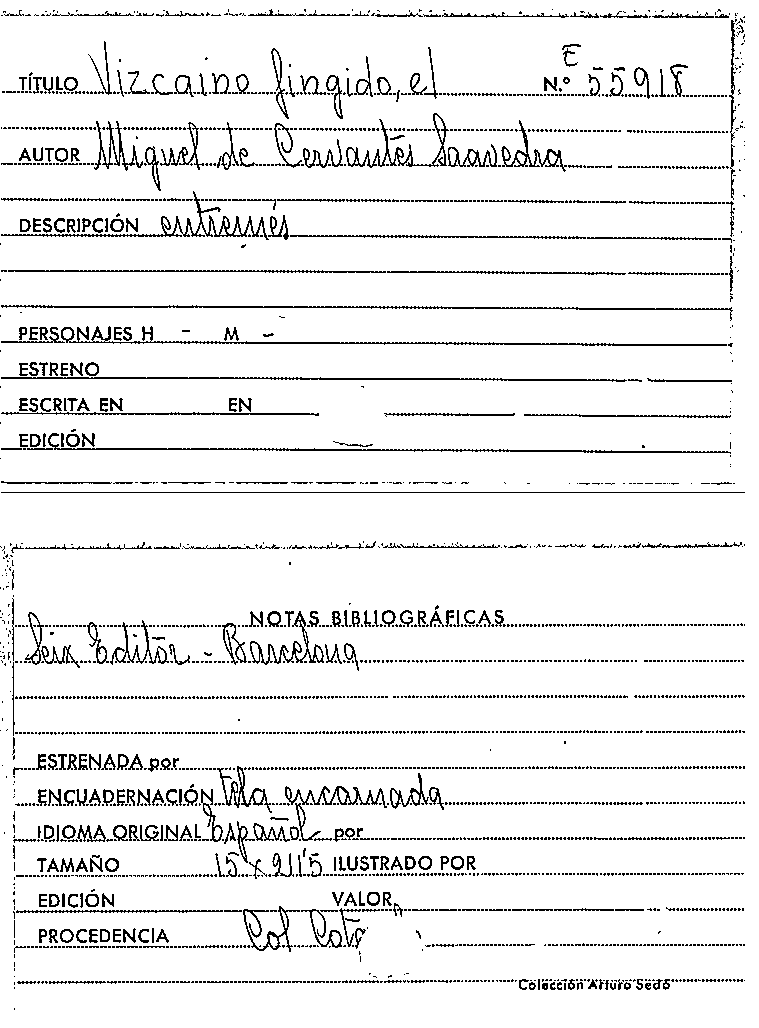 TÍTULO Vizcaino fingido, el N.º E 55918
AUTOR Miguel de Cervantes Saavedra
DESCRIPCIÓN entremés
PERSONAJES H - M -
ESTRENO
ESCRITA EN EN
EDICIÓN
NOTAS BIBLIOGRÁFICAS
Seix Editor - Barcelona
ESTRENADA por
ENCUADERNACIÓN tela encarnada
IDIOMA ORIGINAL Español por
TAMAÑO 15 x 21'5 ILUSTRADO POR
EDICIÓN VALOR
PROCEDENCIA Col
Colección Arturo Sedó